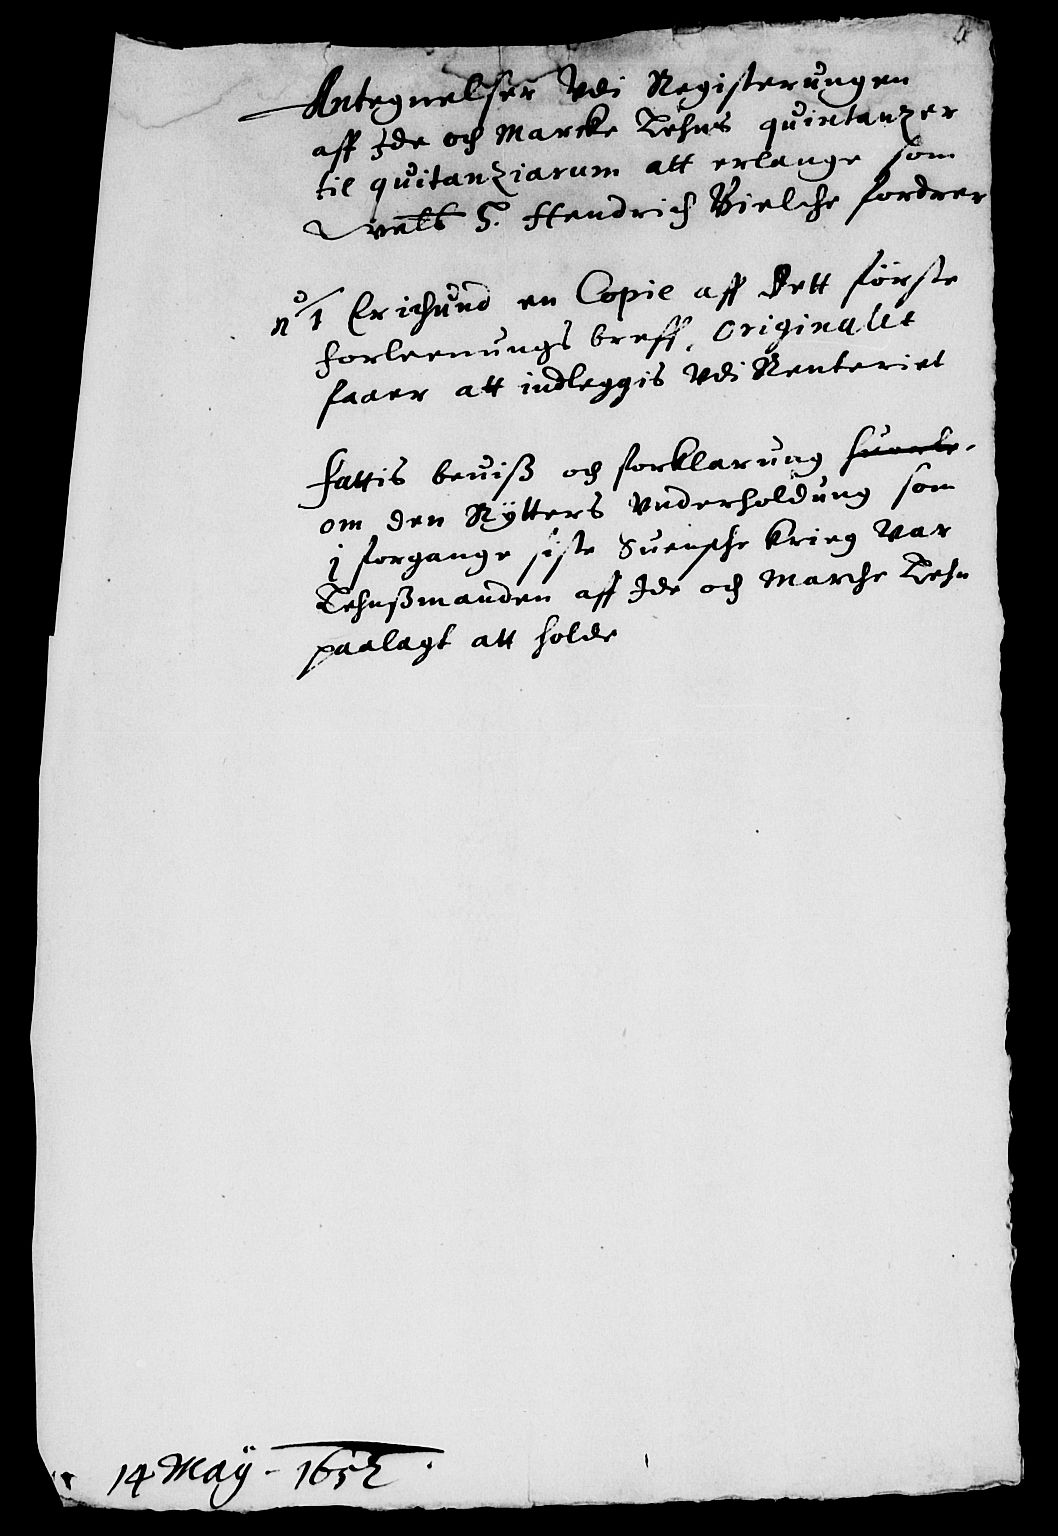 Antegnelser Vdi Registerungen
aff Jde och Marcke Lehns quintanzer
til quitanziarum att erlange som
velb H. Hendrich Bielche fordrer
no 1 Erichund en Copie aff Dett første
forleenungs breff, Originalet
faaer att indleggis Vdi Renteriet
Fattis beuiß och forklarung huorle-
om den Rÿtters Vnderholdung som
j forgange siste Suensche Krieg var
Lehnßmanden aff Jde och Marche Lehn
paalagt att holde
14 Maÿ - 1652